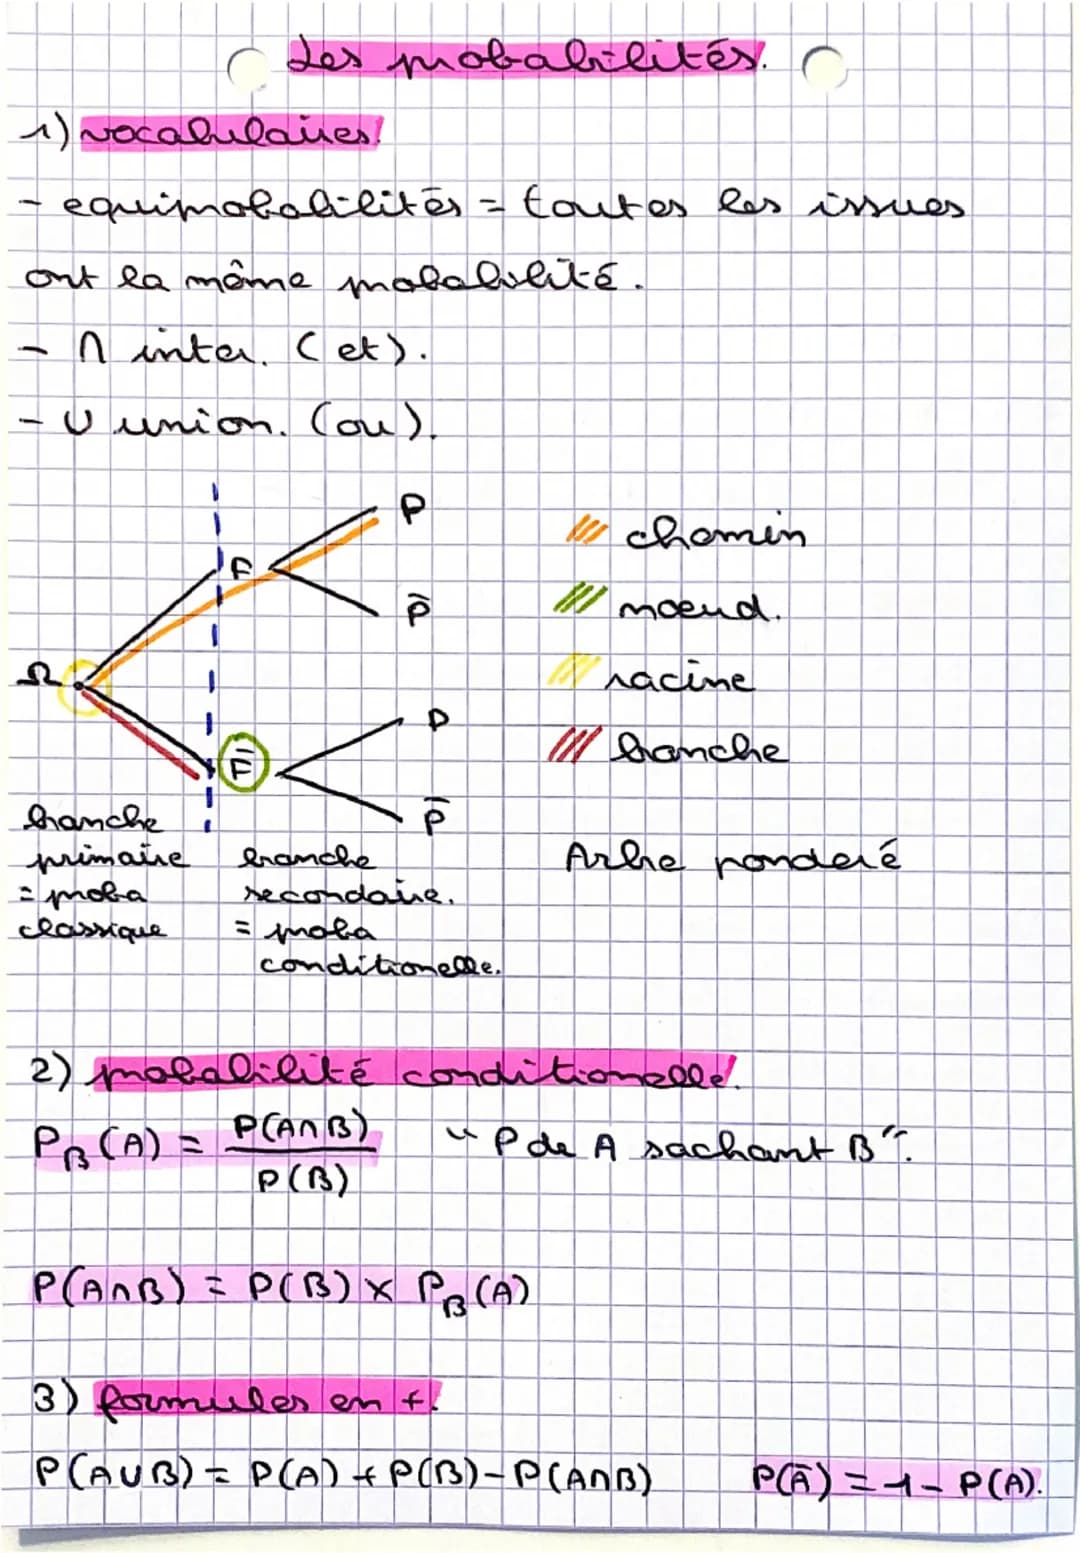 Les probabilités.
1) vocabulaires!
- equiprobabilités = toutes les issues
ont la même probabilité.
- ∩ inter. (et).
- U union. (ou).
P
F
P̄
Ω
P
F̄
P̄
chemin
noeud.
racine
branche
branche
primaire
= proba
classique
branche
secondaire.
= proba
conditionelle.
Arbre ponderé
2) probabilité conditionelle.
P_B(A) = P(A∩B) / P(B) " P de A sachant B".
P(A∩B) = P(B) × P_B(A)
3) formules en +!
P(AUB) = P(A) + P(B) - P(A∩B) P(Ā) = 1 - P(A).